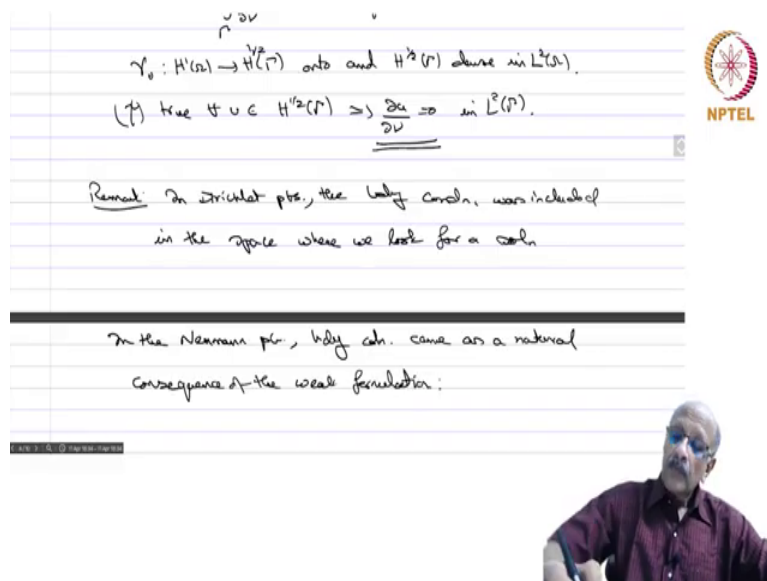 Γ ∂ν
γ₀ : H¹(Ω) → H^{1/2}(Γ) onto and H^{1/2}(Γ) dense in L²(Ω).
(†) true ∀ v ∈ H^{1/2}(Γ) ⇒ ∂u/∂ν = 0 in L²(Γ).
NPTEL
Remark: In Dirichlet pbs., the bdry condn. was included
in the space where we look for a soln
In the Neumann pb., bdry cdn. came as a natural
consequence of the weak formulation: